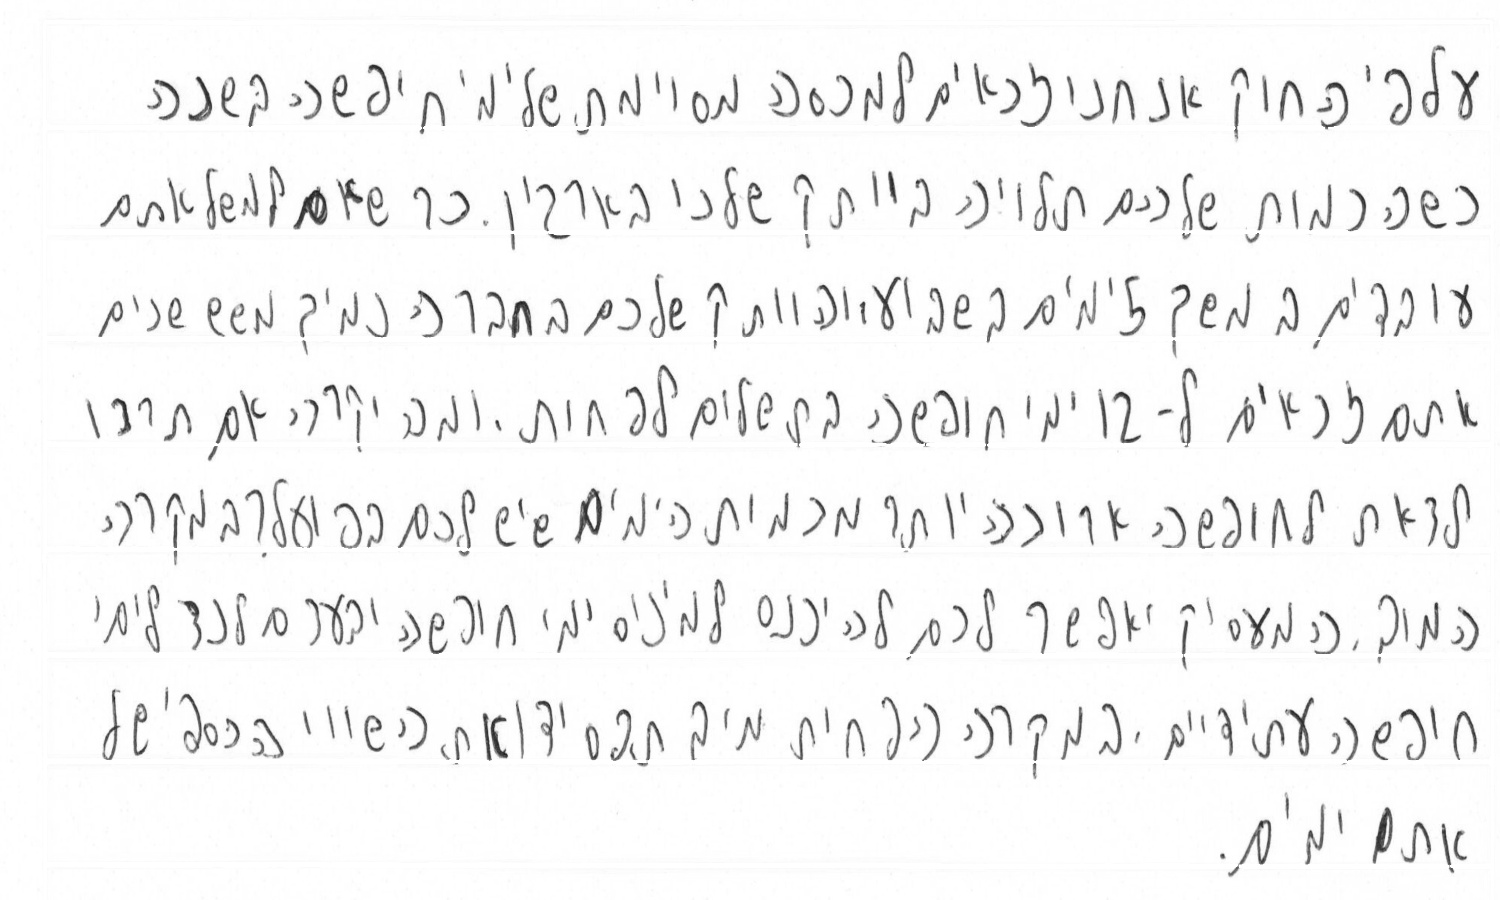 על פי החוק אנחנו זכאים למכסה מסוימת של ימי חופשה בשנה
כשהכמות שלכם תלויה בוותק שלכו בארגון. כך שאם למשל אתם
עובדים במשך 5 ימים בשבוע, והוותק שלכם בחברה נמיך משש שנים
אתם זכאים ל-12 ימי חופשה בתשלום לפחות. ומה יקרה אם תרצו
לצאת לחופשה ארוכה יותר מכמות הימים שיש לכם בפועל? במקרה
הטוב, המעסיק יאפשר לכם להיכנס למינוס ימי חופשה יבערם לנצל לימי
חופשה עתידיים. במקרה הפחות טוב תפסידו את השווי הכספי של
אתם ימים.